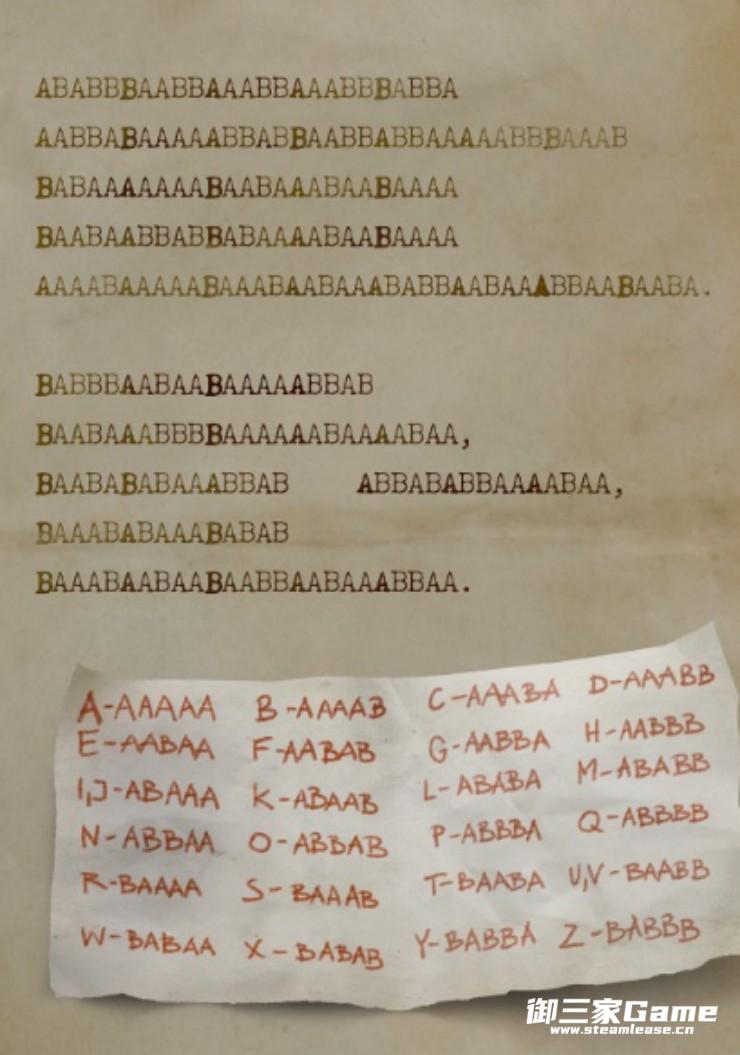 ABABBBAABBAAABBAAABBBABBA
AABBABAAAAABBABBAABBABBAAAAABBBAAAB
BABAAAAAAABAABAAABAABAAAA
BAABAABBABBABAAAABAABAAAA
AAAABAAAAABAAABAABAAABABBAABAAABBAABAABA.
BABBBAABAABAAAAABBAB
BAABAAABBBBAAAAAABAAAABAA,
BAABABABAAABBAB ABBABABBAAAABAA,
BAAABABAAABABAB
BAAABAABAABAABBAABAAABBAA.
A-AAAAA B-AAAAB C-AAABA D-AAABB
E-AABAA F-AABAB G-AABBA H-AABBB
I,J-ABAAA K-ABAAB L-ABABA M-ABABB
N-ABBAA O-ABBAB P-ABBBA Q-ABBBB
R-BAAAA S-BAAAB T-BAABA U,V-BAABB
W-BABAA X-BABAB Y-BABBA Z-BABBB
御三家Game
www.steamlease.cn